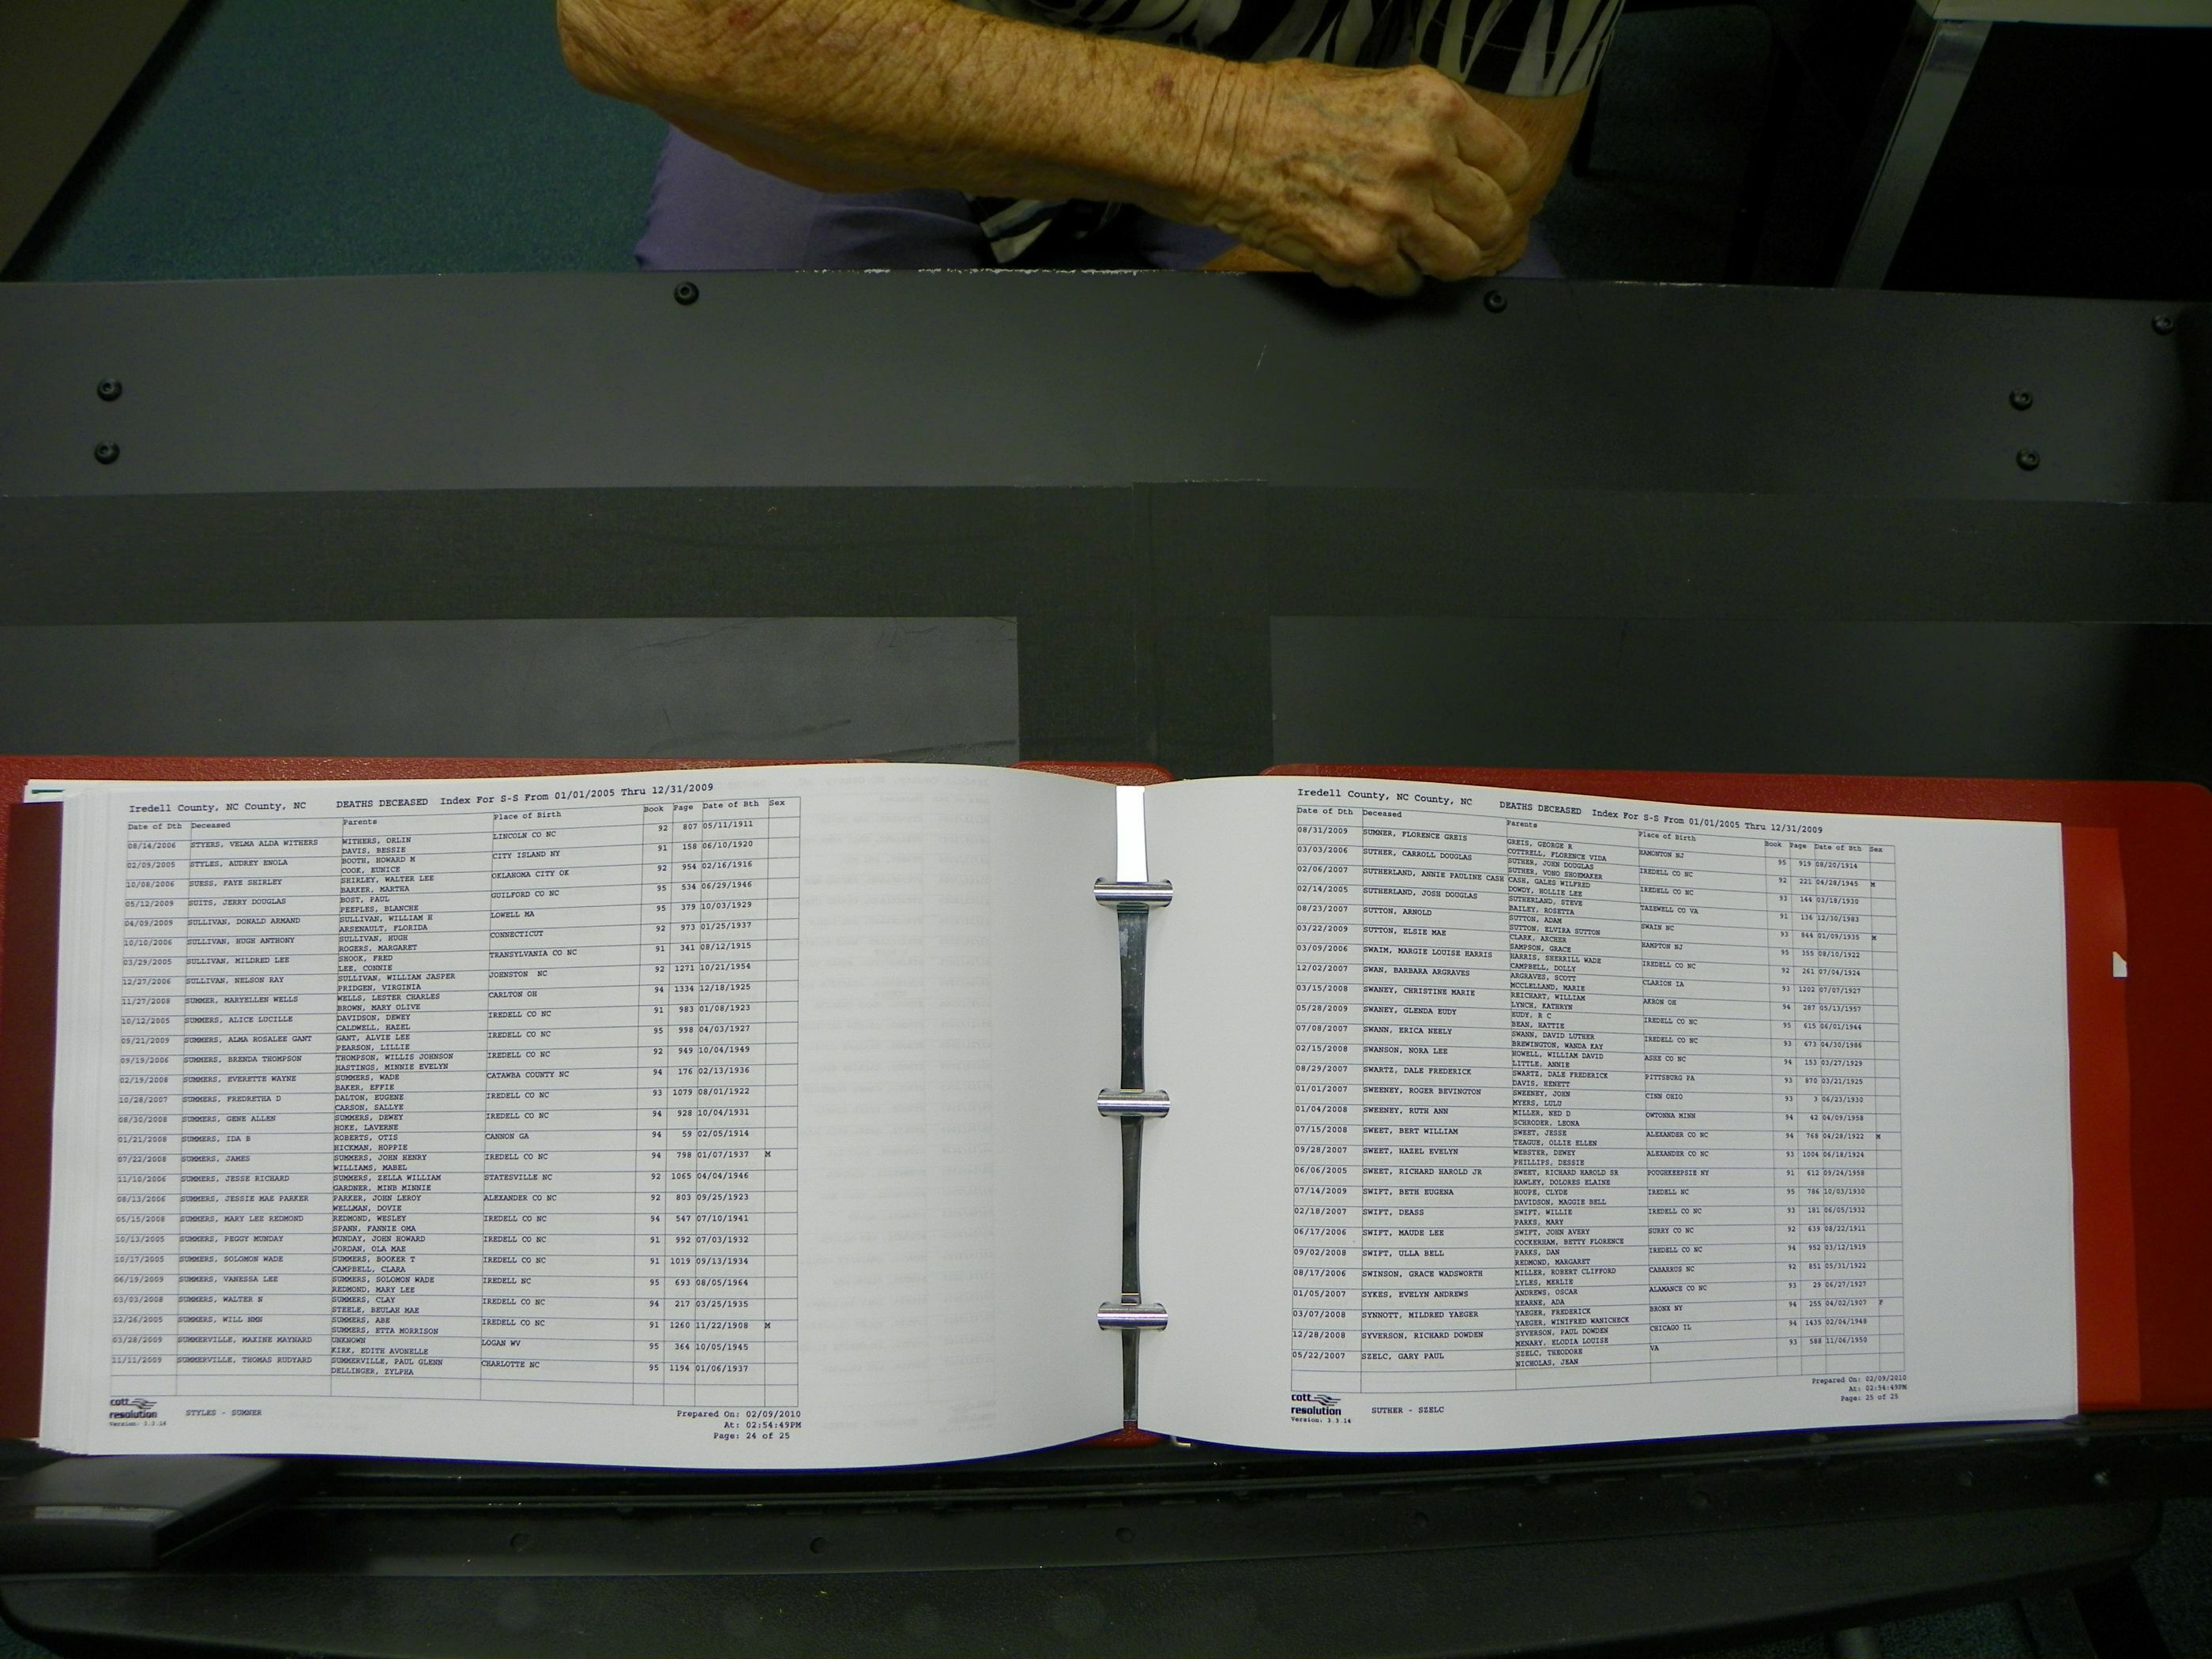 Iredell County, NC County, NC DEATHS DECEASED Index For S-S From 01/01/2005 Thru 12/31/2009
Date of Dth Deceased Parents Place of Birth Book Page Date of Bth Sex
08/14/2006 STYERS, VELMA ALDA WITHERS WITHERS, ORLIN LINCOLN CO NC 92 807 05/11/1911
DAVIS, BESSIE
02/09/2005 STYLES, AUDREY ENOLA BOOTH, HOWARD M CITY ISLAND NY 91 158 06/10/1920
COOK, EUNICE
10/08/2006 SUESS, FAYE SHIRLEY SHIRLEY, WALTER LEE OKLAHOMA CITY OK 92 954 02/16/1916
BARKER, MARTHA
05/12/2009 SUITS, JERRY DOUGLAS BOST, PAUL GUILFORD CO NC 95 534 06/29/1946
PEEPLES, BLANCHE
04/09/2009 SULLIVAN, DONALD ARMAND SULLIVAN, WILLIAM H LOWELL MA 95 379 10/03/1929
ARSENAULT, FLORIDA
10/10/2006 SULLIVAN, HUGH ANTHONY SULLIVAN, HUGH CONNECTICUT 92 973 01/25/1937
ROGERS, MARGARET
03/29/2005 SULLIVAN, MILDRED LEE SHOOK, FRED TRANSYLVANIA CO NC 91 341 08/12/1915
LEE, CONNIE
12/27/2006 SULLIVAN, NELSON RAY SULLIVAN, WILLIAM JASPER JOHNSTON NC 92 1271 10/21/1954
PRIDGEN, VIRGINIA
11/27/2008 SUMMER, MARYELLEN WELLS WELLS, LESTER CHARLES CARLTON OH 94 1334 12/18/1925
BROWN, MARY OLIVE
10/12/2005 SUMMERS, ALICE LUCILLE DAVIDSON, DEWEY IREDELL CO NC 91 983 01/08/1923
CALDWELL, HAZEL
09/21/2009 SUMMERS, ALMA ROSALEE GANT GANT, ALVIE LEE IREDELL CO NC 95 998 04/03/1927
PEARSON, LILLIE
09/19/2006 SUMMERS, BRENDA THOMPSON THOMPSON, WILLIS JOHNSON IREDELL CO NC 92 949 10/04/1949
HASTINGS, MINNIE EVELYN
02/19/2008 SUMMERS, EVERETTE WAYNE SUMMERS, WADE CATAWBA COUNTY NC 94 176 02/13/1936
BAKER, EFFIE
10/28/2007 SUMMERS, FREDRETHA D DALTON, EUGENE IREDELL CO NC 93 1079 08/01/1922
CARSON, SALLYE
08/30/2008 SUMMERS, GENE ALLEN SUMMERS, DEWEY IREDELL CO NC 94 928 10/04/1931
HOKE, LAVERNE
01/21/2008 SUMMERS, IDA B ROBERTS, OTIS CANNON GA 94 59 02/05/1914
HICKMAN, HOPPIE
07/22/2008 SUMMERS, JAMES SUMMERS, JOHN HENRY IREDELL CO NC 94 798 01/07/1937 M
WILLIAMS, MABEL
11/10/2006 SUMMERS, JESSE RICHARD SUMMERS, ZELLA WILLIAM STATESVILLE NC 92 1065 04/04/1946
GARDNER, MINB MINNIE
08/13/2006 SUMMERS, JESSIE MAE PARKER PARKER, JOHN LEROY ALEXANDER CO NC 92 803 09/25/1923
WELLMAN, DOVIE
05/15/2008 SUMMERS, MARY LEE REDMOND REDMOND, WESLEY IREDELL CO NC 94 547 07/10/1941
SPANN, FANNIE OMA
10/13/2005 SUMMERS, PEGGY MUNDAY MUNDAY, JOHN HOWARD IREDELL CO NC 91 992 07/03/1932
JORDAN, OLA MAE
10/17/2005 SUMMERS, SOLOMON WADE SUMMERS, BOOKER T IREDELL CO NC 91 1019 09/13/1934
CAMPBELL, CLARA
06/19/2009 SUMMERS, VANESSA LEE SUMMERS, SOLOMON WADE IREDELL NC 95 693 08/05/1964
REDMOND, MARY LEE
03/03/2008 SUMMERS, WALTER N SUMMERS, CLAY IREDELL CO NC 94 217 03/25/1935
STEELE, BEULAH MAE
12/26/2005 SUMMERS, WILL NMN SUMMERS, ABE IREDELL CO NC 91 1260 11/22/1908 M
SUMMERS, ETTA MORRISON
03/28/2009 SUMMERVILLE, MAXINE MAYNARD UNKNOWN LOGAN WV 95 364 10/05/1945
KIRK, EDITH AVONELLE
11/11/2009 SUMMERVILLE, THOMAS RUDYARD SUMMERVILLE, PAUL GLENN CHARLOTTE NC 95 1194 01/06/1937
DELLINGER, ZYLPHA
cott
resolution
Version: 3.3.14
STYLES - SUMNER
Prepared On: 02/09/2010
At: 02:54:49PM
Page: 24 of 25
Iredell County, NC County, NC DEATHS DECEASED Index For S-S From 01/01/2005 Thru 12/31/2009
Date of Dth Deceased Parents Place of Birth Book Page Date of Bth Sex
08/31/2009 SUMNER, FLORENCE GREIS GREIS, GEORGE R HAMONTON NJ 95 919 08/20/1914
COTTRELL, FLORENCE VIDA
03/03/2006 SUTHER, CARROLL DOUGLAS SUTHER, JOHN DOUGLAS IREDELL CO NC 92 221 04/28/1945 M
SUTHER, VONO SHOEMAKER
02/06/2007 SUTHERLAND, ANNIE PAULINE CASH CASH, GALES WILFRED IREDELL CO NC 93 144 03/18/1930
DOWDY, HOLLIE LEE
02/14/2005 SUTHERLAND, JOSH DOUGLAS SUTHERLAND, STEVE TAZEWELL CO VA 91 136 12/30/1983
BAILEY, ROSETTA
08/23/2007 SUTTON, ARNOLD SUTTON, ADAM SWAIN NC 93 844 01/09/1935 M
SUTTON, ELVIRA SUTTON
03/22/2009 SUTTON, ELSIE MAE CLARK, ARCHER HAMPTON NJ 95 355 08/10/1922
SAMPSON, GRACE
03/09/2006 SWAIM, MARGIE LOUISE HARRIS HARRIS, SHERRILL WADE IREDELL CO NC 92 261 07/04/1924
CAMPBELL, DOLLY
12/02/2007 SWAN, BARBARA ARGRAVES ARGRAVES, SCOTT CLARION IA 93 1202 07/07/1927
MCCLELLAND, MARIE
03/15/2008 SWANEY, CHRISTINE MARIE REICHART, WILLIAM AKRON OH 94 287 05/13/1957
LYNCH, KATHRYN
05/28/2009 SWANEY, GLENDA EUDY EUDY, R C IREDELL CO NC 95 615 06/01/1944
BEAN, HATTIE
07/08/2007 SWANN, ERICA NEELY SWANN, DAVID LUTHER IREDELL CO NC 93 673 04/30/1986
BREWINGTON, WANDA KAY
02/15/2008 SWANSON, NORA LEE HOWELL, WILLIAM DAVID ASHE CO NC 94 153 03/27/1929
LITTLE, ANNIE
08/29/2007 SWARTZ, DALE FREDERICK SWARTZ, DALE FREDERICK PITTSBURG PA 93 870 03/21/1925
DAVIS, RENETT
01/01/2007 SWEENEY, ROGER BEVINGTON SWEENEY, JOHN CINN OHIO 93 3 06/23/1930
MYERS, LULU
01/04/2008 SWEENEY, RUTH ANN MILLER, NED D OWTONNA MINN 94 42 04/09/1958
SCHRODER, LEONA
07/15/2008 SWEET, BERT WILLIAM SWEET, JESSE ALEXANDER CO NC 94 768 04/28/1922 M
TEAGUE, OLLIE ELLEN
09/28/2007 SWEET, HAZEL EVELYN WEBSTER, DEWEY ALEXANDER CO NC 93 1004 06/18/1924
PHILLIPS, DESSIE
06/06/2005 SWEET, RICHARD HAROLD JR SWEET, RICHARD HAROLD SR POUGHKEEPSIE NY 91 612 09/24/1958
HAWLEY, DOLORES ELAINE
07/14/2009 SWIFT, BETH EUGENA HOUPE, CLYDE IREDELL NC 95 786 10/03/1930
DAVIDSON, MAGGIE BELL
02/18/2007 SWIFT, DEASS SWIFT, WILLIE IREDELL CO NC 93 181 06/05/1932
PARKS, MARY
06/17/2006 SWIFT, MAUDE LEE SWIFT, JOHN AVERY SURRY CO NC 92 639 08/22/1911
COCKERHAM, BETTY FLORENCE
09/02/2008 SWIFT, ULLA BELL PARKS, DAN IREDELL CO NC 94 952 03/12/1919
REDMOND, MARGARET
08/17/2006 SWINSON, GRACE WADSWORTH MILLER, ROBERT CLIFFORD CABARRUS NC 92 851 05/31/1922
LYLES, MERLIE
01/05/2007 SYKES, EVELYN ANDREWS ANDREWS, OSCAR ALAMANCE CO NC 93 29 06/27/1927
HEARNE, ADA
03/07/2008 SYNNOTT, MILDRED YAEGER YAEGER, FREDERICK BRONX NY 94 255 04/02/1907 F
YAEGER, WINIFRED WANICHECK
12/28/2008 SYVERSON, RICHARD DOWDEN SYVERSON, PAUL DOWDEN CHICAGO IL 94 1435 02/04/1948
MENARY, ELODIA LOUISE
05/22/2007 SZELC, GARY PAUL SZELC, THEODORE VA 93 588 11/06/1950
NICHOLAS, JEAN
cott
resolution
Version: 3.3.14
SUTHER - SZELC
Prepared On: 02/09/2010
At: 02:54:49PM
Page: 25 of 25